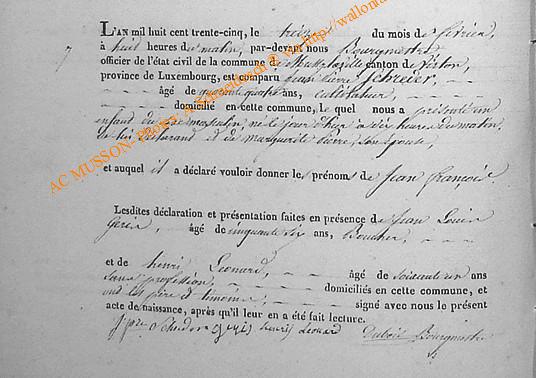 L'AN mil huit cent trente-cinq, le treize du mois de février,
7
à huit heures du matin, par-devant nous Bourgmestre
officier de l'état civil de la commune de canton de
province de Luxembourg, est comparu pierre Schreder,
âgé de quarante quatre ans, cultivateur,
domicilié en cette commune, le quel nous a présenté un
enfant du sexe masculin, né le jour d'hier à dix heures du matin,
de lui déclarant et de marguerite pierre, son épouse,
et auquel il a déclaré vouloir donner les prénoms de Jean françois.
Lesdites déclaration et présentation faites en présence de Jean Louis
âgé de cinquante six ans, Boucher,
et de henri Leonard, âgé de soixante un ans
sans profession, domiciliés en cette commune, et
ont les père et témoins, signé avec nous le présent
acte de naissance, après qu'il leur en a été fait lecture.
henri Leonard Dubois Bourgmestre
AC MUSSON-